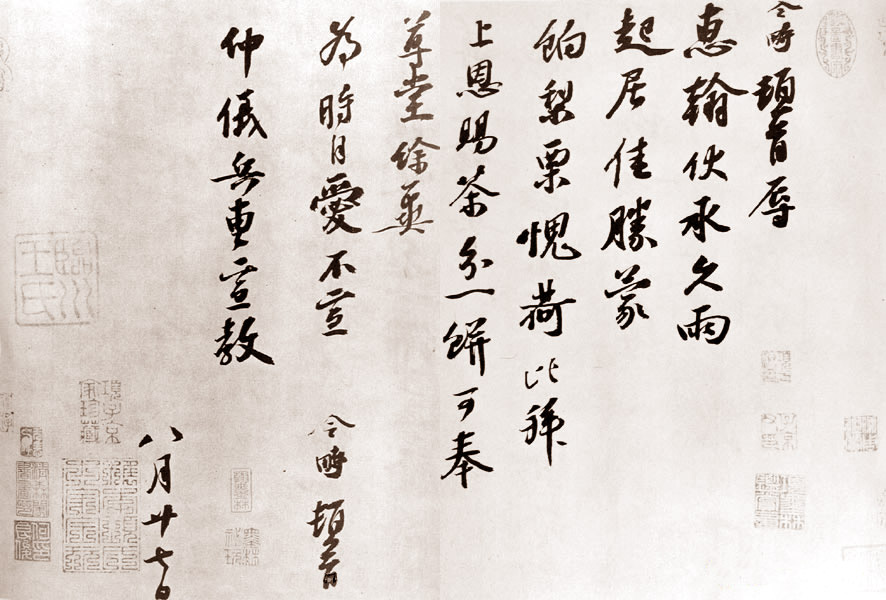 令畤頓首辱
惠翰伏承久雨
起居佳勝蒙
餉梨栗愧荷比拜
上恩賜茶分一餅可奉
尊堂餘惟
為時自愛不宣
令畤頓首
仲儀兵曹宣教
八月廿七日
臨川王氏
項子京家珍藏